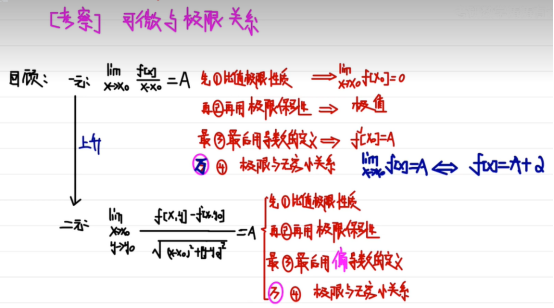 [考察] 可微与极限关系
回顾: 一元: lim x→x₀ f(x)/(x-x₀) = A 先①比值极限性质 ⟹ lim x→x₀ f(x₀)=0
再②再用极限保号性 ⟹ 极值
最③最后用导数的定义 ⟹ f'(x₀)=A
上升 ④ 极限与无穷小关系 lim x→x₀ f(x)=A ⟺ f(x)=A+α
二元: lim x→x₀ y→y₀ (f(x,y)-f(x₀,y₀))/√((x-x₀)²+(y-y₀)²) = A 先①比值极限性质
再②再用极限保号性
最③最后用偏导数的定义
④ 极限与无穷小关系